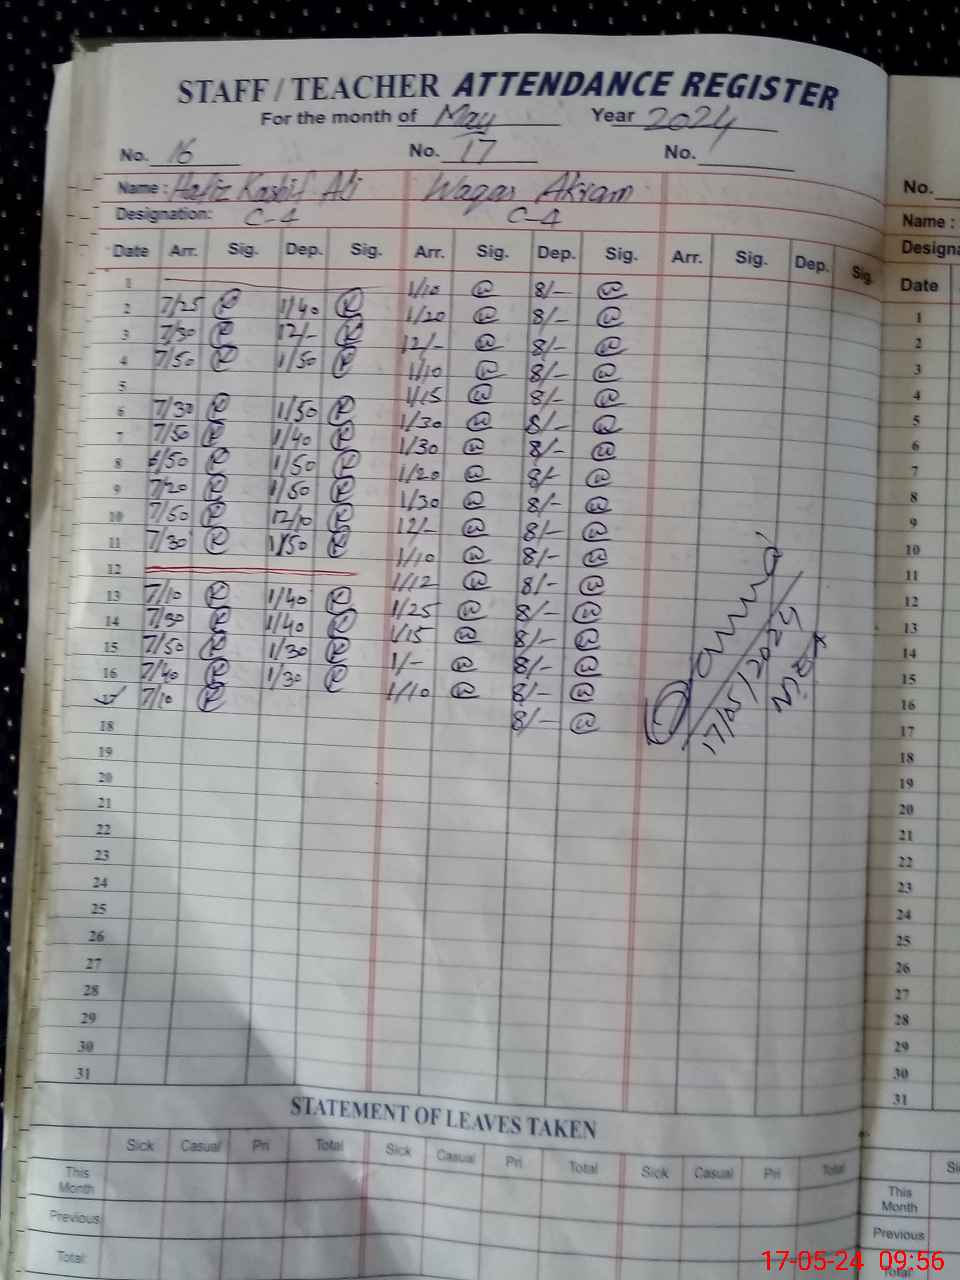 STAFF / TEACHER ATTENDANCE REGISTER
For the month of May Year 2024
No. 16 No. 17 No.
Name : Hafiz Kashif Ali Waqas Akram
Designation: C-4 C-4
Date Arr. Sig. Dep. Sig. Arr. Sig. Dep. Sig. Arr. Sig. Dep. Sig.
1 1/10 @ 8/- @
2 7/25 K 1/40 K 1/20 @ 8/- @
3 7/30 K 12/- K 12/- @ 8/- @
4 7/50 K 1/50 K 1/10 @ 8/- @
5 1/15 @ 8/- @
6 7/30 K 1/50 K 1/30 @ 8/- @
7 7/50 K 1/40 K 1/30 @ 8/- @
8 6/50 K 1/50 K 1/20 @ 8/- @
9 7/20 K 1/50 K 1/30 @ 8/- @
10 7/50 K 12/10 K 12/- @ 8/- @
11 7/30 K 1/50 K 1/10 @ 8/- @
12 1/12 @ 8/- @
13 7/10 K 1/40 K 1/25 @ 8/- @
14 7/30 K 1/40 K 1/15 @ 8/- @
15 7/50 K 1/30 K 1/- @ 8/- @
16 7/40 K 1/30 K 1/10 @ 8/- @
17 7/10 K 8/- @
18
19
20
21
22
23
24
25
26
27
28
29
30
31
STATEMENT OF LEAVES TAKEN
Sick Casual Pri Total Sick Casual Pri Total Sick Casual Pri Total
This Month
Previous
Total:
No.
Name :
Designa
Date
1
2
3
4
5
6
7
8
9
10
11
12
13
14
15
16
17
18
19
20
21
22
23
24
25
26
27
28
29
30
31
This Month
Previous
Total
17-05-24 09:56